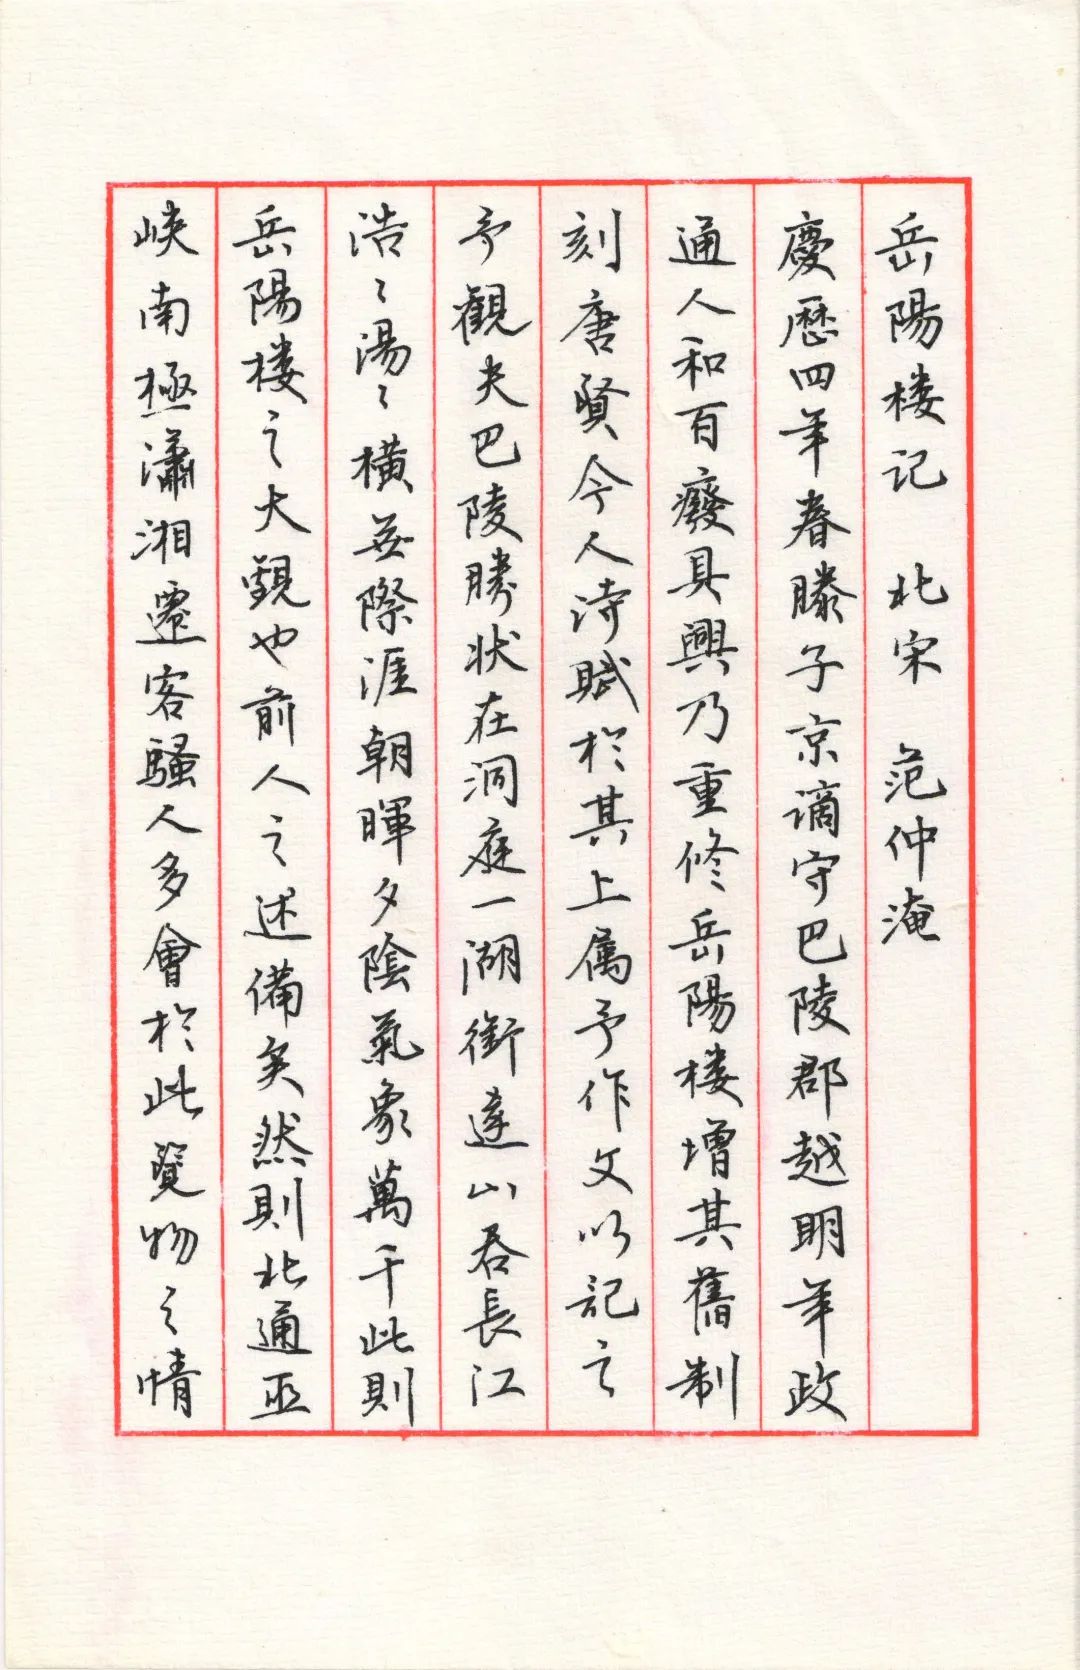 岳陽楼记 北宋 范仲淹
慶歷四年春滕子京謫守巴陵郡越明年政
通人和百癈具興乃重修岳陽楼增其舊制
刻唐賢今人诗賦於其上属予作文以記之
予觀夫巴陵勝状在洞庭一湖銜遠山吞長江
浩〻湯〻横無際涯朝暉夕陰氣象萬千此則
岳陽楼之大觀也前人之述備矣然則北通巫
峡南極瀟湘遷客騷人多會於此覽物之情